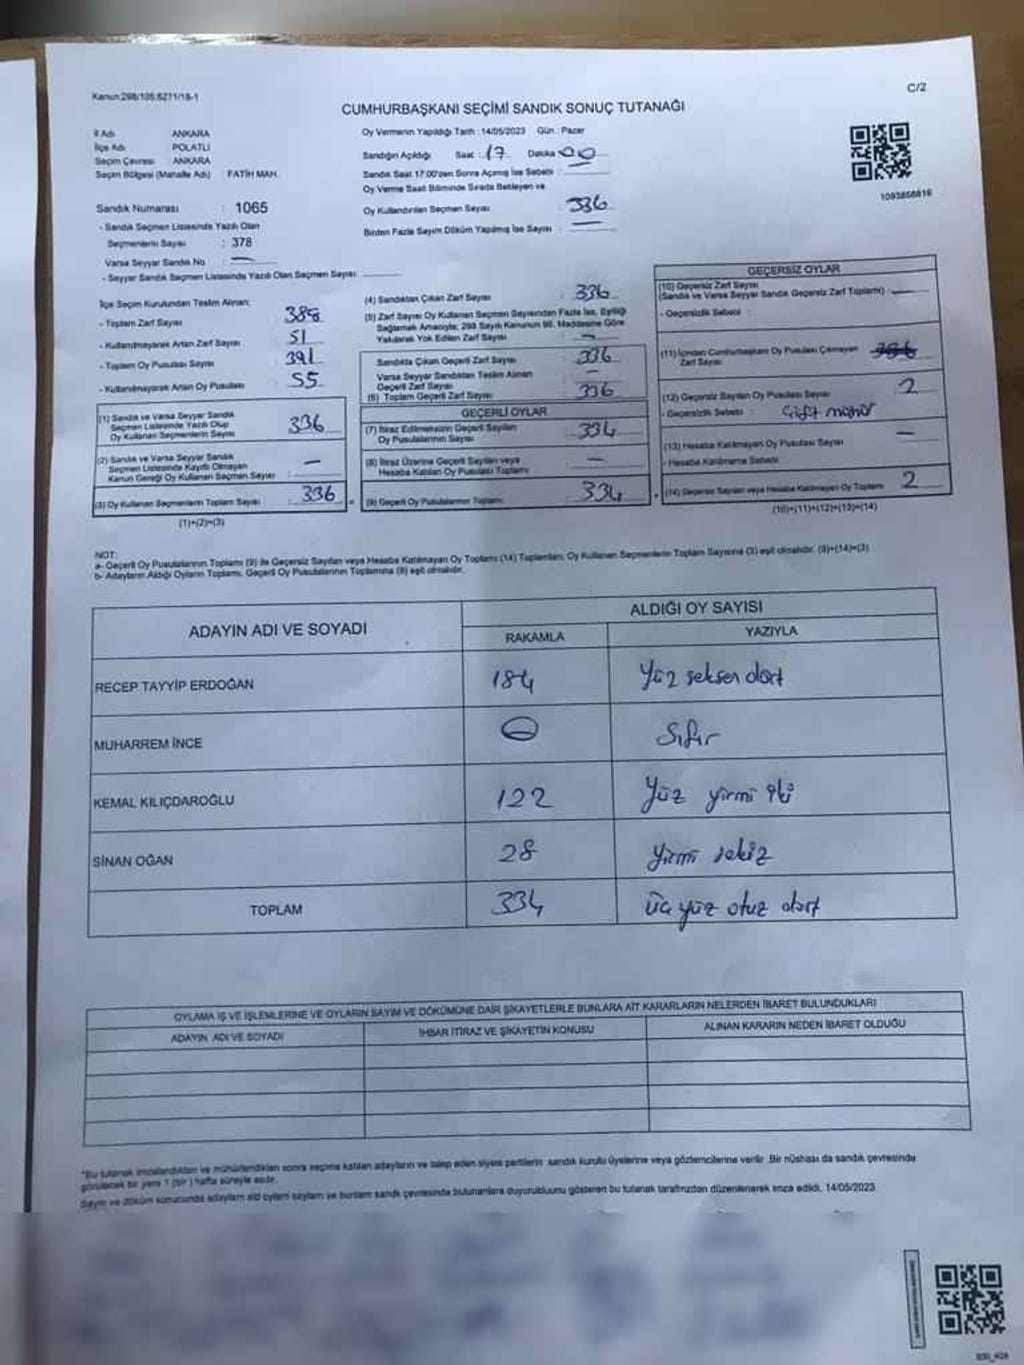 Kanun:298/105,6271/18-1
C/2
CUMHURBAŞKANI SEÇİMİ SANDIK SONUÇ TUTANAĞI
İl Adı ANKARA
İlçe Adı POLATLI
Seçim Çevresi ANKARA
Seçim Bölgesi (Mahalle Adı) FATİH MAH.
Oy Vermenin Yapıldığı Tarih : 14/05/2023 Gün : Pazar
Sandığın Açıldığı Saat : 17 Dakika 00
Sandık Saat 17:00'den Sonra Açılmış İse Sebebi :
Oy Verme Saati Bitiminde Sırada Bekleyen ve
Oy Kullandırılan Seçmen Sayısı : 336
Birden Fazla Sayım Döküm Yapılmış İse Sayısı : —
1093858816
Sandık Numarası : 1065
- Sandık Seçmen Listesinde Yazılı Olan
Seçmenlerin Sayısı : 378
Varsa Seyyar Sandık No : —
- Seyyar Sandık Seçmen Listesinde Yazılı Olan Seçmen Sayısı
İlçe Seçim Kurulundan Teslim Alınan;
- Toplam Zarf Sayısı 388
- Kullanılmayarak Artan Zarf Sayısı 51
- Toplam Oy Pusulası Sayısı 391
- Kullanılmayarak Artan Oy Pusulası 55
(1) Sandık ve Varsa Seyyar Sandık
Seçmen Listesinde Yazılı Olup
Oy Kullanan Seçmenlerin Sayısı 336
(2) Sandık ve Varsa Seyyar Sandık
Seçmen Listesinde Kayıtlı Olmayan
Kanun Gereği Oy Kullanan Seçmen Sayısı —
(3) Oy Kullanan Seçmenlerin Toplam Sayısı : 336 =
(1)+(2)=(3)
(4) Sandıktan Çıkan Zarf Sayısı : 336
(5) Zarf Sayısı Oy Kullanan Seçmen Sayısından Fazla İse, Eşitliği
Sağlamak Amacıyla; 298 Sayılı Kanunun 98. Maddesine Göre
Yakılarak Yok Edilen Zarf Sayısı —
Sandıkta Çıkan Geçerli Zarf Sayısı 336
Varsa Seyyar Sandıktan Teslim Alınan
Geçerli Zarf Sayısı —
(6) Toplam Geçerli Zarf Sayısı 336
GEÇERLİ OYLAR
(7) İtiraz Edilmeksizin Geçerli Sayılan
Oy Pusulalarının Sayısı 334
(8) İtiraz Üzerine Geçerli Sayılan veya
Hesaba Katılan Oy Pusulası Toplamı —
(9) Geçerli Oy Pusulalarının Toplamı 334 +
GEÇERSİZ OYLAR
(10) Geçersiz Zarf Sayısı
(Sandık ve Varsa Seyyar Sandık Geçersiz Zarf Toplamı) : —
- Geçersizlik Sebebi :
(11) İçinden Cumhurbaşkanı Oy Pusulası Çıkmayan
Zarf Sayısı
(12) Geçersiz Sayılan Oy Pusulası Sayısı 2
- Geçersizlik Sebebi : Çift mühür
(13) Hesaba Katılmayan Oy Pusulası Sayısı —
- Hesaba Katılmama Sebebi
(14) Geçersiz Sayılan veya Hesaba Katılmayan Oy Toplamı 2
(10)+(11)+(12)+(13)=(14)
NOT:
a- Geçerli Oy Pusulalarının Toplamı (9) ile Geçersiz Sayılan veya Hesaba Katılmayan Oy Toplamı (14) Toplamları, Oy Kullanan Seçmenlerin Toplam Sayısına (3) eşit olmalıdır. (9)+(14)=(3)
b- Adayların Aldığı Oyların Toplamı, Geçerli Oy Pusulalarının Toplamına (9) eşit olmalıdır.
ADAYIN ADI VE SOYADI
ALDIĞI OY SAYISI
RAKAMLA YAZIYLA
RECEP TAYYİP ERDOĞAN 184 Yüz seksen dört
MUHARREM İNCE 0 Sıfır
KEMAL KILIÇDAROĞLU 122 Yüz yirmi iki
SİNAN OĞAN 28 Yirmi sekiz
TOPLAM 334 Üç yüz otuz dört
OYLAMA İŞ VE İŞLEMLERİNE VE OYLARIN SAYIM VE DÖKÜMÜNE DAİR ŞİKAYETLERLE BUNLARA AİT KARARLARIN NELERDEN İBARET BULUNDUKLARI
ADAYIN ADI VE SOYADI İHBAR İTİRAZ VE ŞİKAYETİN KONUSU ALINAN KARARIN NEDEN İBARET OLDUĞU
*Bu tutanak imzalandıktan ve mühürlendikten sonra seçime katılan adayların ve talep eden siyasi partilerin sandık kurulu üyelerine veya gözlemcilerine verilir. Bir nüshası da sandık çevresinde
görülecek bir yere 1 (bir) hafta süreyle asılır.
Sayım ve döküm sonucunda adayların aldığı oyların sayıları ve bunların sandık çevresinde bulunanlara duyurulduğunu gösteren bu tutanak tarafımızdan düzenlenerek imza edildi. 14/05/2023